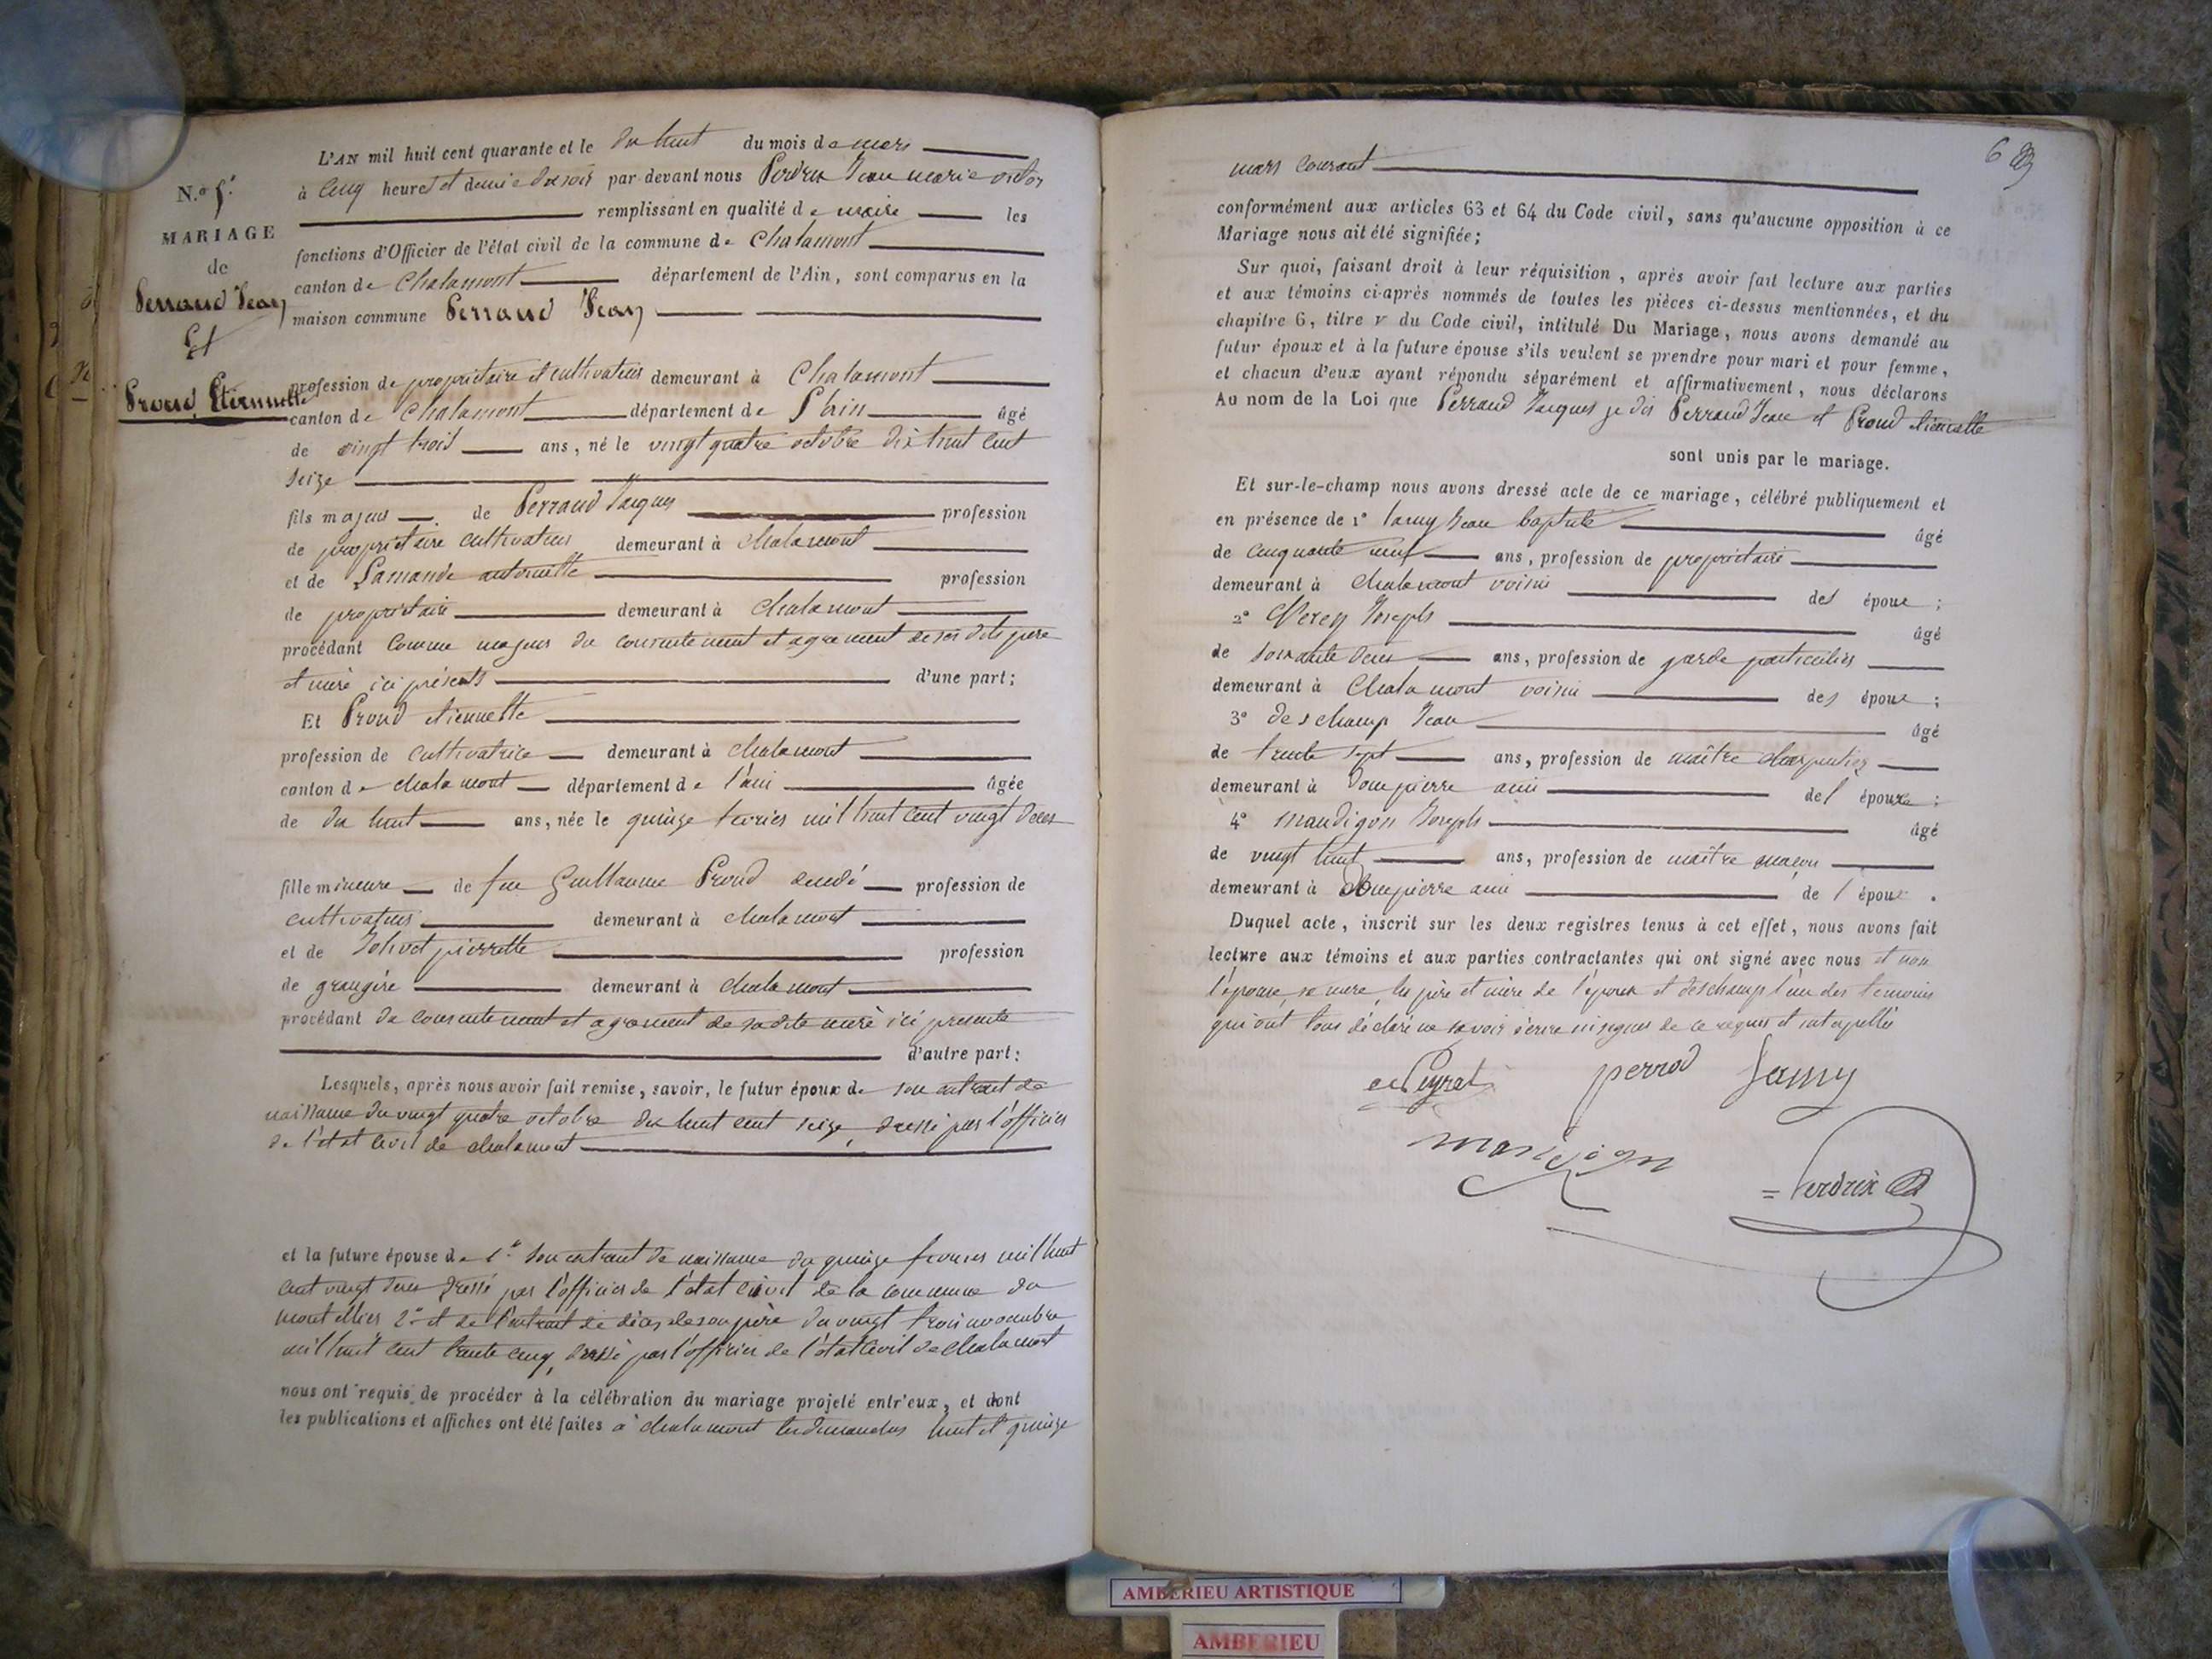 L'AN mil huit cent quarante et le dix huit du mois de mars
N.º 5.
à cinq heures et demie du soir par-devant nous Perdrix Jean marie victor
remplissant en qualité de maire les
MARIAGE
fonctions d'Officier de l'état civil de la commune de Chalamont
de
canton de Chalamont département de l'Ain, sont comparus en la
Perraud Jean
maison commune Perraud Jean
Et
profession de propriétaire et cultivateur demeurant à Chalamont
Proud Etiennette
canton de Chalamont département de l'ain âgé
de vingt trois ans, né le vingt quatre octobre dix huit cent
seize
fils majeur de Perraud Jacques profession
de propriétaire cultivateur demeurant à chalamont
et de Lamande antoinette profession
de propriétaire demeurant à chalamont
procédant comme majeur du consentement et agrement de ses dits père
et mère ici présents d'une part;
Et Proud etiennette
profession de cultivatrice demeurant à chalamont
canton de chalamont département de l'ain âgée
de dix huit ans, née le quinze fevrier mil huit cent vingt deux
fille mineure de feu Guillaume Proud profession de
cultivateur demeurant à chalamont
et de Jolivet pierrette profession
de grangère demeurant à chalamont
procédant du consentement et agrement de sa dite mère ici presente
d'autre part;
Lesquels, après nous avoir fait remise, savoir, le futur époux de son extrait de
naissance du vingt quatre octobre dix huit cent seize, dressé par l'officier
de l'etat civil de chalamont
et la future épouse de 1º son extrait de naissance du quinze fevrier mil huit
cent vingt deux dressé par l'officier de l'état civil de la commune du
montellier 2º et de l'extrait de décès de son père du vingt trois novembre
mil huit cent trente cinq, dressé par l'officier de l'état civil de chalamont
nous ont requis de procéder à la célébration du mariage projeté entr'eux, et dont
les publications et affiches ont été faites à chalamont les dimanches huit et quinze
6
mars courant
conformément aux articles 63 et 64 du Code civil, sans qu'aucune opposition à ce
Mariage nous ait été signifiée;
Sur quoi, faisant droit à leur réquisition, après avoir fait lecture aux parties
et aux témoins ci-après nommés de toutes les pièces ci-dessus mentionnées, et du
chapitre 6, titre v du Code civil, intitulé Du Mariage, nous avons demandé au
futur époux et à la future épouse s'ils veulent se prendre pour mari et pour femme,
et chacun d'eux ayant répondu séparément et affirmativement, nous déclarons
Au nom de la Loi que Perraud Jacques je dis Perraud Jean et Proud etiennette
sont unis par le mariage.
Et sur-le-champ nous avons dressé acte de ce mariage, célébré publiquement et
en présence de 1º Jean baptiste âgé
de cinquante neuf ans, profession de propriétaire
demeurant à Chalamont voisin des époux;
2º Joseph âgé
de soixante deux ans, profession de garde particulier
demeurant à Chalamont voisin des époux;
3º deschamp Jean âgé
de trente sept ans, profession de maître charpentier
demeurant à Dompierre ami de l'épouse;
4º mandigon Joseph âgé
de vingt huit ans, profession de maître maçon
demeurant à Dompierre ami de l'époux.
Duquel acte, inscrit sur les deux registres tenus à cet effet, nous avons fait
lecture aux témoins et aux parties contractantes qui ont signé avec nous et non
l'épouse, sa mere, les père et mère de l'époux et deschamp l'un des temoins
qui ont tous déclaré ne savoir écrire ni signer de ce requis et interpellés
perrod
Perdrix
AMBERIEU ARTISTIQUE
AMBERIEU